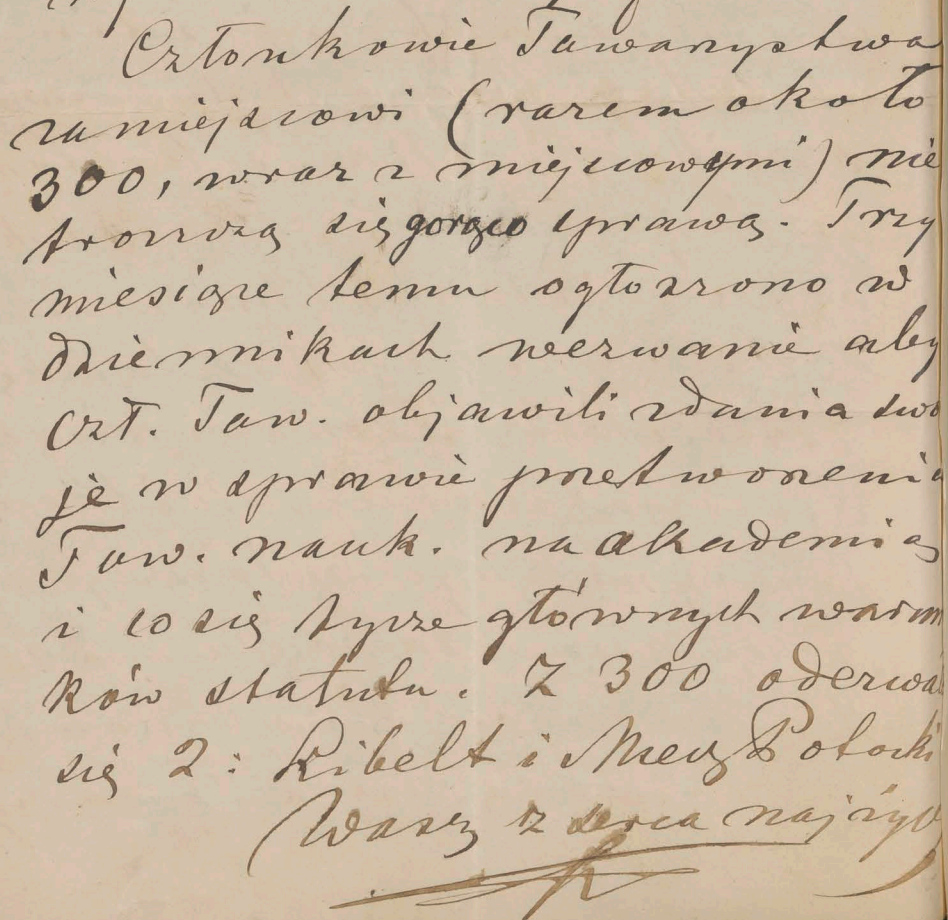 Członkowie Towarzystwa
zamiejscowi (razem około
300, wraz z miejscowymi) nie
troszczą się gorąco sprawą. Trzy
miesiące temu ogłoszono w
dziennikach wezwanie aby
Czł. Tow. objawili zdania swo
je w sprawie przetworzenia
Tow. nauk. na akademią
i co się tycze głównych warun
ków statutu. Z 300 oderwa
się 2: Libelt i Miecz Potocki
Wasz z serca najżyc